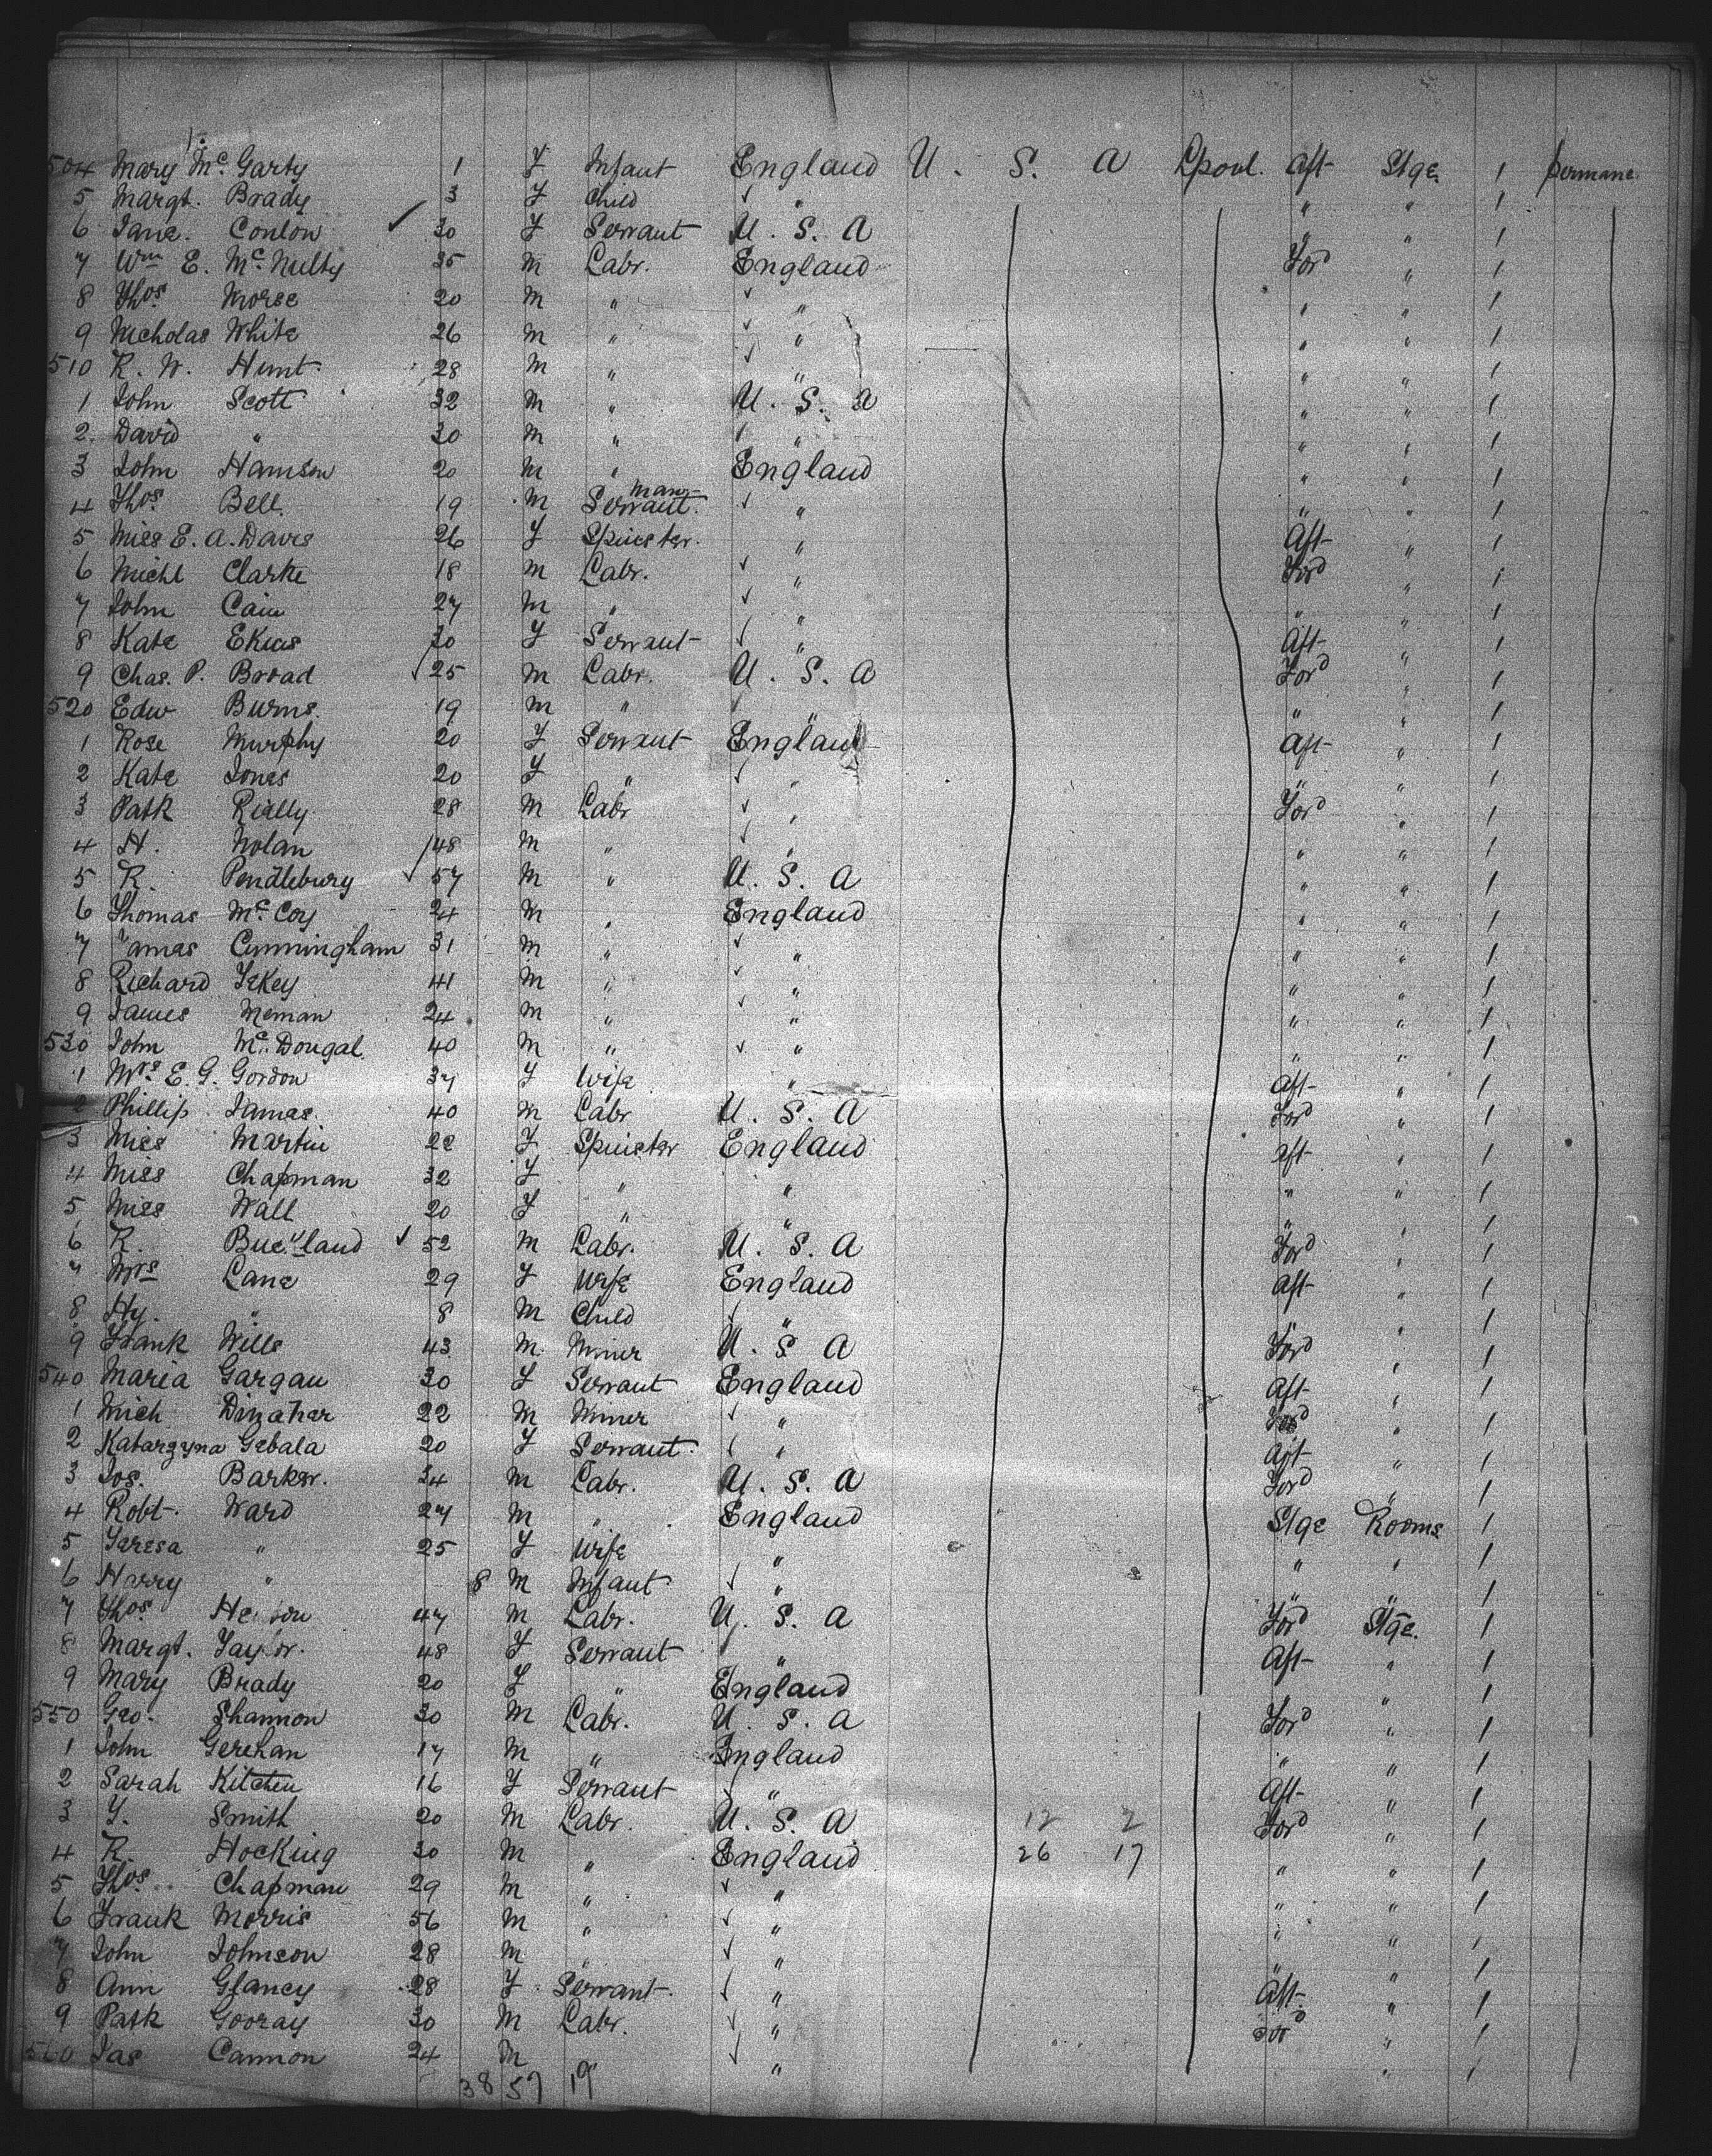 504 Mary Mc Garty 1 F Infant England U. S. A Lpool. Aft Stge. 1 permane
5 Margt. Brady 3 F Child ✓ " " " 1
6 Jane. Conlon ✓ 30 F Servant U. S. A " " 1
7 Wm E. Mc Nulty 35 M Labr. England For'd " 1
8 Thos. Morse 20 M " ✓ " " " 1
9 Nicholas White 26 M " ✓ " " " 1
510 R. W. Hunt 28 M " ✓ " " " 1
1 John Scott 32 M " U. S. A " " 1
2. David " 30 M " " " " 1
3 John 20 M " England " " 1
4 Thos. Bell. 19 M Servant. ✓ " " " 1
5 Miss E. A. Davis 26 F Spinster. " Aft " 1
6 Michl Clarke 18 M Labr. ✓ " For'd " 1
7 John Cain 27 M " ✓ " " " 1
8 Kate Ekins 30 F Servant ✓ " Aft " 1
9 Chas. P. Broad ✓ 25 M Labr. U. S. A For'd " 1
520 Edw Burns. 19 M " " " " 1
1 Rose Murphy 20 F Servant England Aft " 1
2 Kate Jones 20 F " ✓ " " " 1
3 Patk Rielly 28 M Labr ✓ " For'd " 1
4 H. Nolan 48 M " ✓ " " " 1
5 R. Pendlebury ✓ 57 M " U. S. A " " 1
6 Thomas Mc Coy 24 M " England " " 1
7 James Cunningham 31 M " ✓ " " " 1
8 Richard 41 M " ✓ " " " 1
9 James 24 M " ✓ " " " 1
530 John Mc Dougal. 40 M " ✓ " " " 1
1 Mrs. E. G. Gordon 37 F Wife " Aft " 1
2 Phillip James. 40 M Labr U. S. A For'd " 1
3 Miss Martin 22 F Spinster England Aft " 1
4 Miss Chapman 32 F " " " " 1
5 Miss Wall 20 F " " " " 1
6 R. Buckland ✓ 52 M Labr. U. S. A For'd " 1
7 Mrs Lane 29 F Wife England Aft " 1
8 Hy. " 8 M Child ✓ " " 1
9 Frank Wills 43 M Miner U. S. A For'd " 1
540 Maria Gargan 30 F Servant England Aft " 1
1 Mich 22 M Miner ✓ " For'd " 1
2 Katarzyna Gebala 20 F Servant. ✓ " Aft " 1
3 Jos. Barker. 34 M Labr. U. S. A For'd " 1
4 Robt. Ward 27 M " England Stge Rooms 1
5 Teresa " 25 F Wife " " " 1
6 Harry " 8 M Infant ✓ " " " 1
7 Thos. 47 M Labr. U. S. A For'd Stge. 1
8 Margt. Taylor. 48 F Servant " Aft " 1
9 Mary Brady 20 F " England " 1
550 Geo. Shannon 30 M Labr. U. S. A For'd " 1
1 John Gerehan 17 M " England " " 1
2 Sarah Kitchen 16 F Servant ✓ " Aft " 1
3 Y. Smith 20 M Labr. U. S. A 12 2 For'd " 1
4 R. Hocking 30 M " England 26 17 " " 1
5 Thos. Chapman 29 M " ✓ " " " 1
6 Frank Morris 56 M " ✓ " " " 1
7 John Johnson 28 M " ✓ " " " 1
8 Ann Glancy 28 F Servant. ✓ " Aft " 1
9 Patk Gooray 30 M Labr. ✓ " For'd " 1
560 Jas Cannon 24 M ✓ " " 1
38 57 19